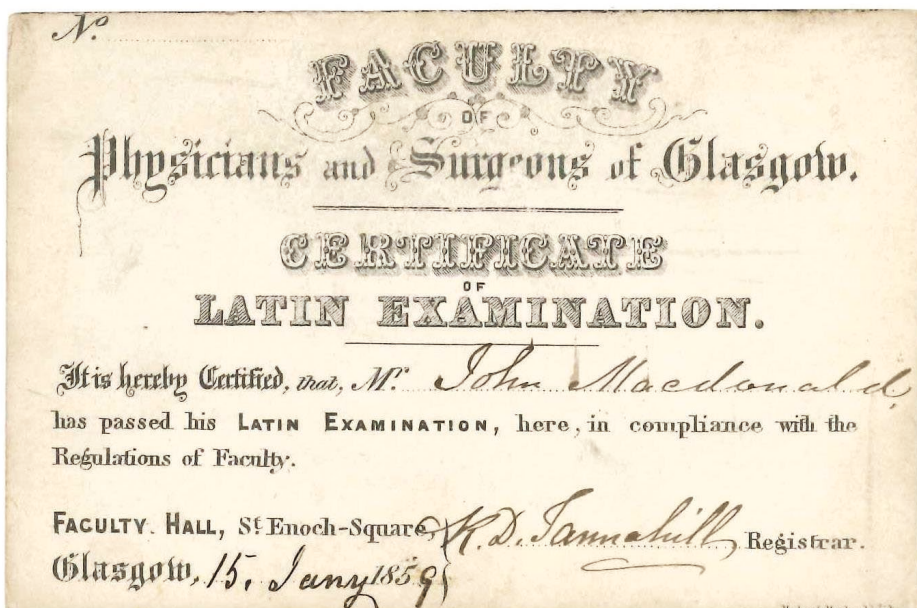 No.
FACULTY
OF
Physicians and Surgeons of Glasgow.
CERTIFICATE
OF
LATIN EXAMINATION.
It is hereby Certified, that, Mr. John Macdonald,
has passed his LATIN EXAMINATION, here, in compliance with the
Regulations of Faculty.
FACULTY HALL, St Enoch-Square, K. D. Tannahill, Registrar.
Glasgow, 15. Jany 1859